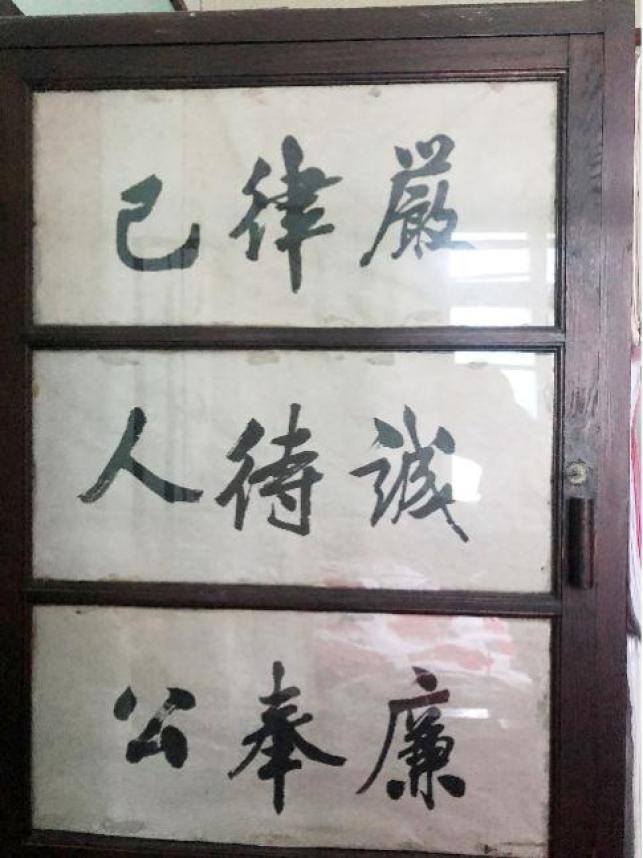 嚴律己
誠待人
廉奉公